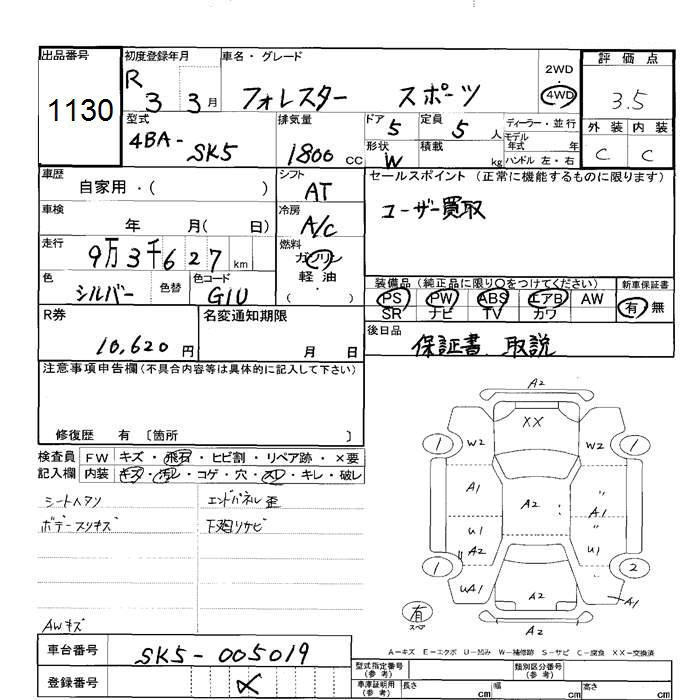 出品番号
1130
初度登録年月
R 3 3月
車名・グレード
フォレスター スポーツ
2WD
・
4WD
評価点
3.5
外装 内装
C C
型式
4BA-
SK5
排気量
1800 cc
ドア 5
定員 5 人
形状 W
積載 kg
ディーラー・並行
モデル
年式 年
ハンドル 左・右
車歴
自家用・( )
シフト
AT
セールスポイント (正常に機能するものに限ります)
ユーザー買取
車検
年 月( 日)
冷房
A/C
走行
9万3千627km
燃料
ガソリン
軽油
( ・ )
色
シルバー
色替
色コード
G1U
装備品 (純正品に限り○をつけてください)
PS PW ABS エアB AW
SR ナビ TV カワ
新車保証書
有・無
R券
10,620 円
名変通知期限
月 日
後日品
保証書、取説
注意事項申告欄(不具合内容等は具体的に記入して下さい)
修復歴 有 〔箇所 〕
検査員
記入欄
FW キズ・飛石・ヒビ割・リペア跡・×要
内装 キズ・汚レ・コゲ・穴・スレ・キレ・破レ
シートヘタリ
ボデースリキズ
AWキズ
エンドパネル歪
下廻りサビ
A2
XX
1 W2 W2 1
A1 A2 〃 A1
U1 〃 U1
〃 A2
1 2
UA1 A2 A1
有
スペア
A2
A-キズ E-エクボ U-凹み W-補修跡 S-サビ C-腐食 XX-交換済
車台番号
SK5-005019
登録番号
型式指定番号
(参考)
類別区分番号
(参考)
車庫証明用
(参考)
長さ cm 幅 cm 高さ cm